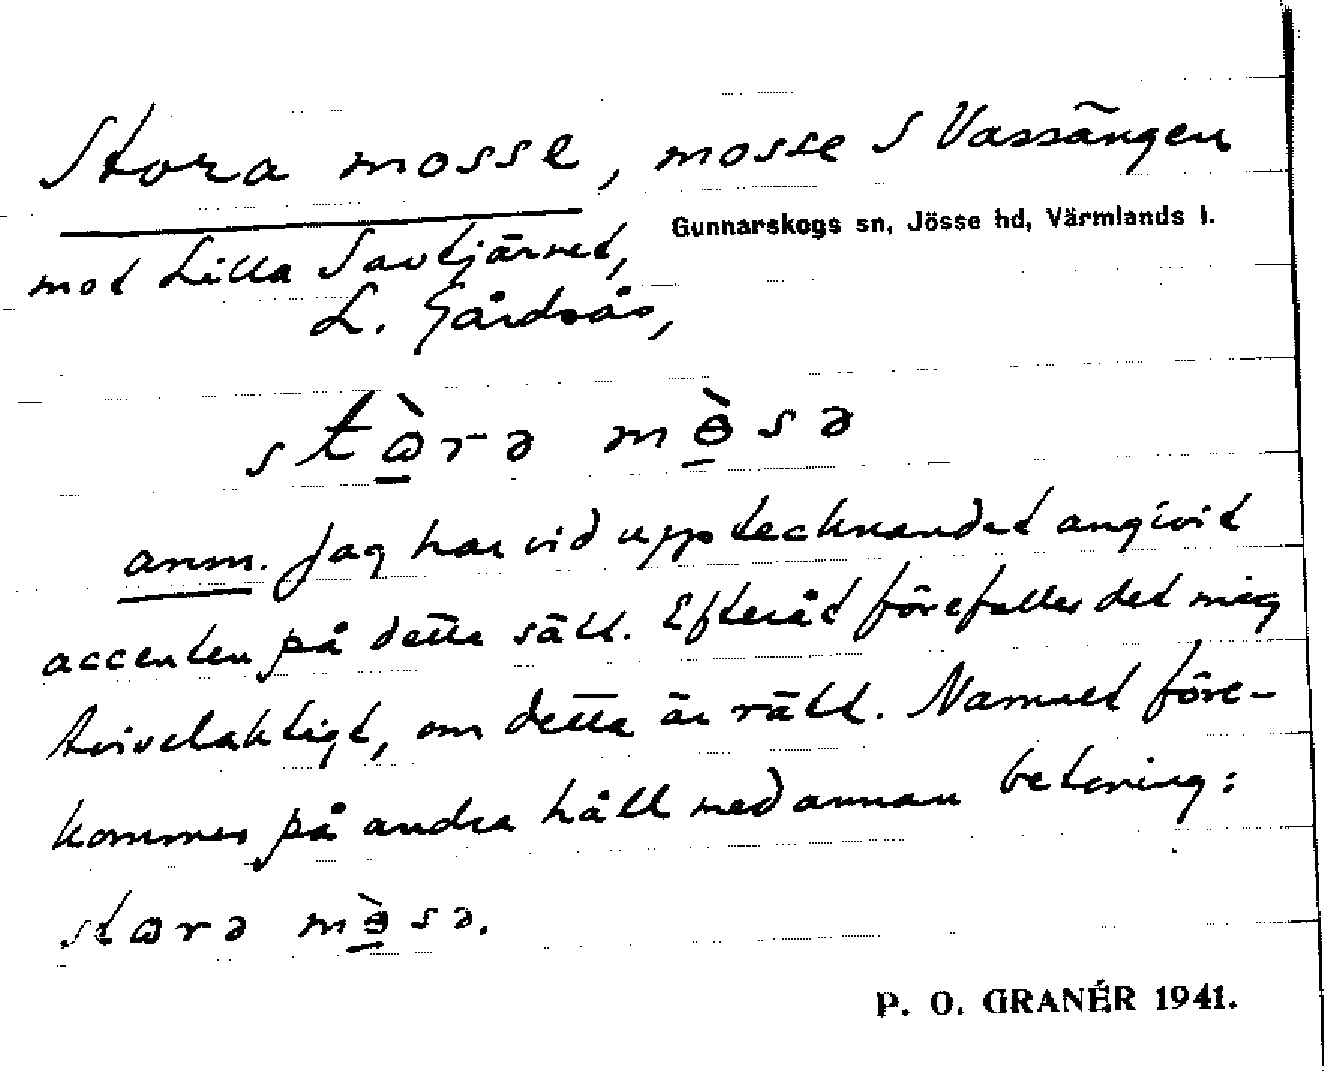 Stora mosse, mosse S Vassängen
Gunnarskogs sn, Jösse hd, Värmlands l.
mot Lilla Savtjärnet,
L. Gårdsås,
stɷ̀rə mɵ̀sə
anm. Jag har vid upptecknandet angivit
accenten på detta sätt. Efteråt förefaller det mig
tvivelaktigt, om detta är rätt. Namnet före-
kommer på andra håll med annan betoning:
stɷrə mɵ̀sə.
P. O. GRANÉR 1941.